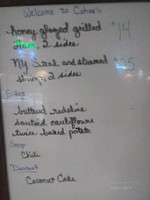 Welcome to Cohee's
honey glazed grilled $14
Ham, 2 sides
NY Steak and steamed
shrimp, 2 sides
Sides
buttered redskins
sauteed cauliflower
twice baked potato
Soup
Chili
Dessert
Coconut Cake